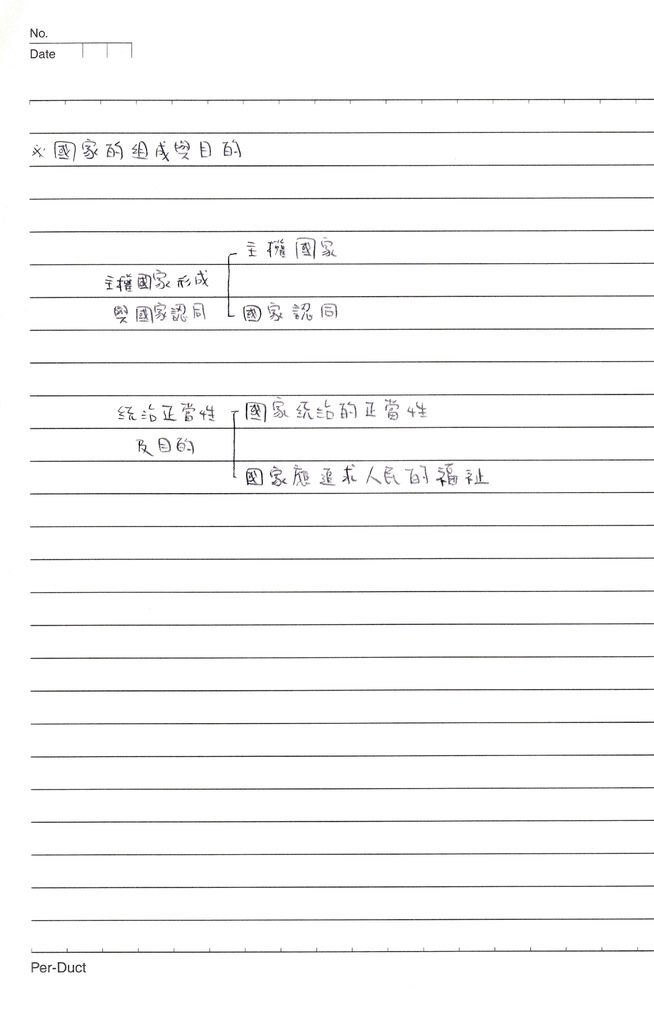 No.
Date
※國家的組成與目的
主權國家
主權國家形成
與國家認同
國家認同
統治正當性
國家統治的正當性
及目的
國家應追求人民的福祉
Per-Duct